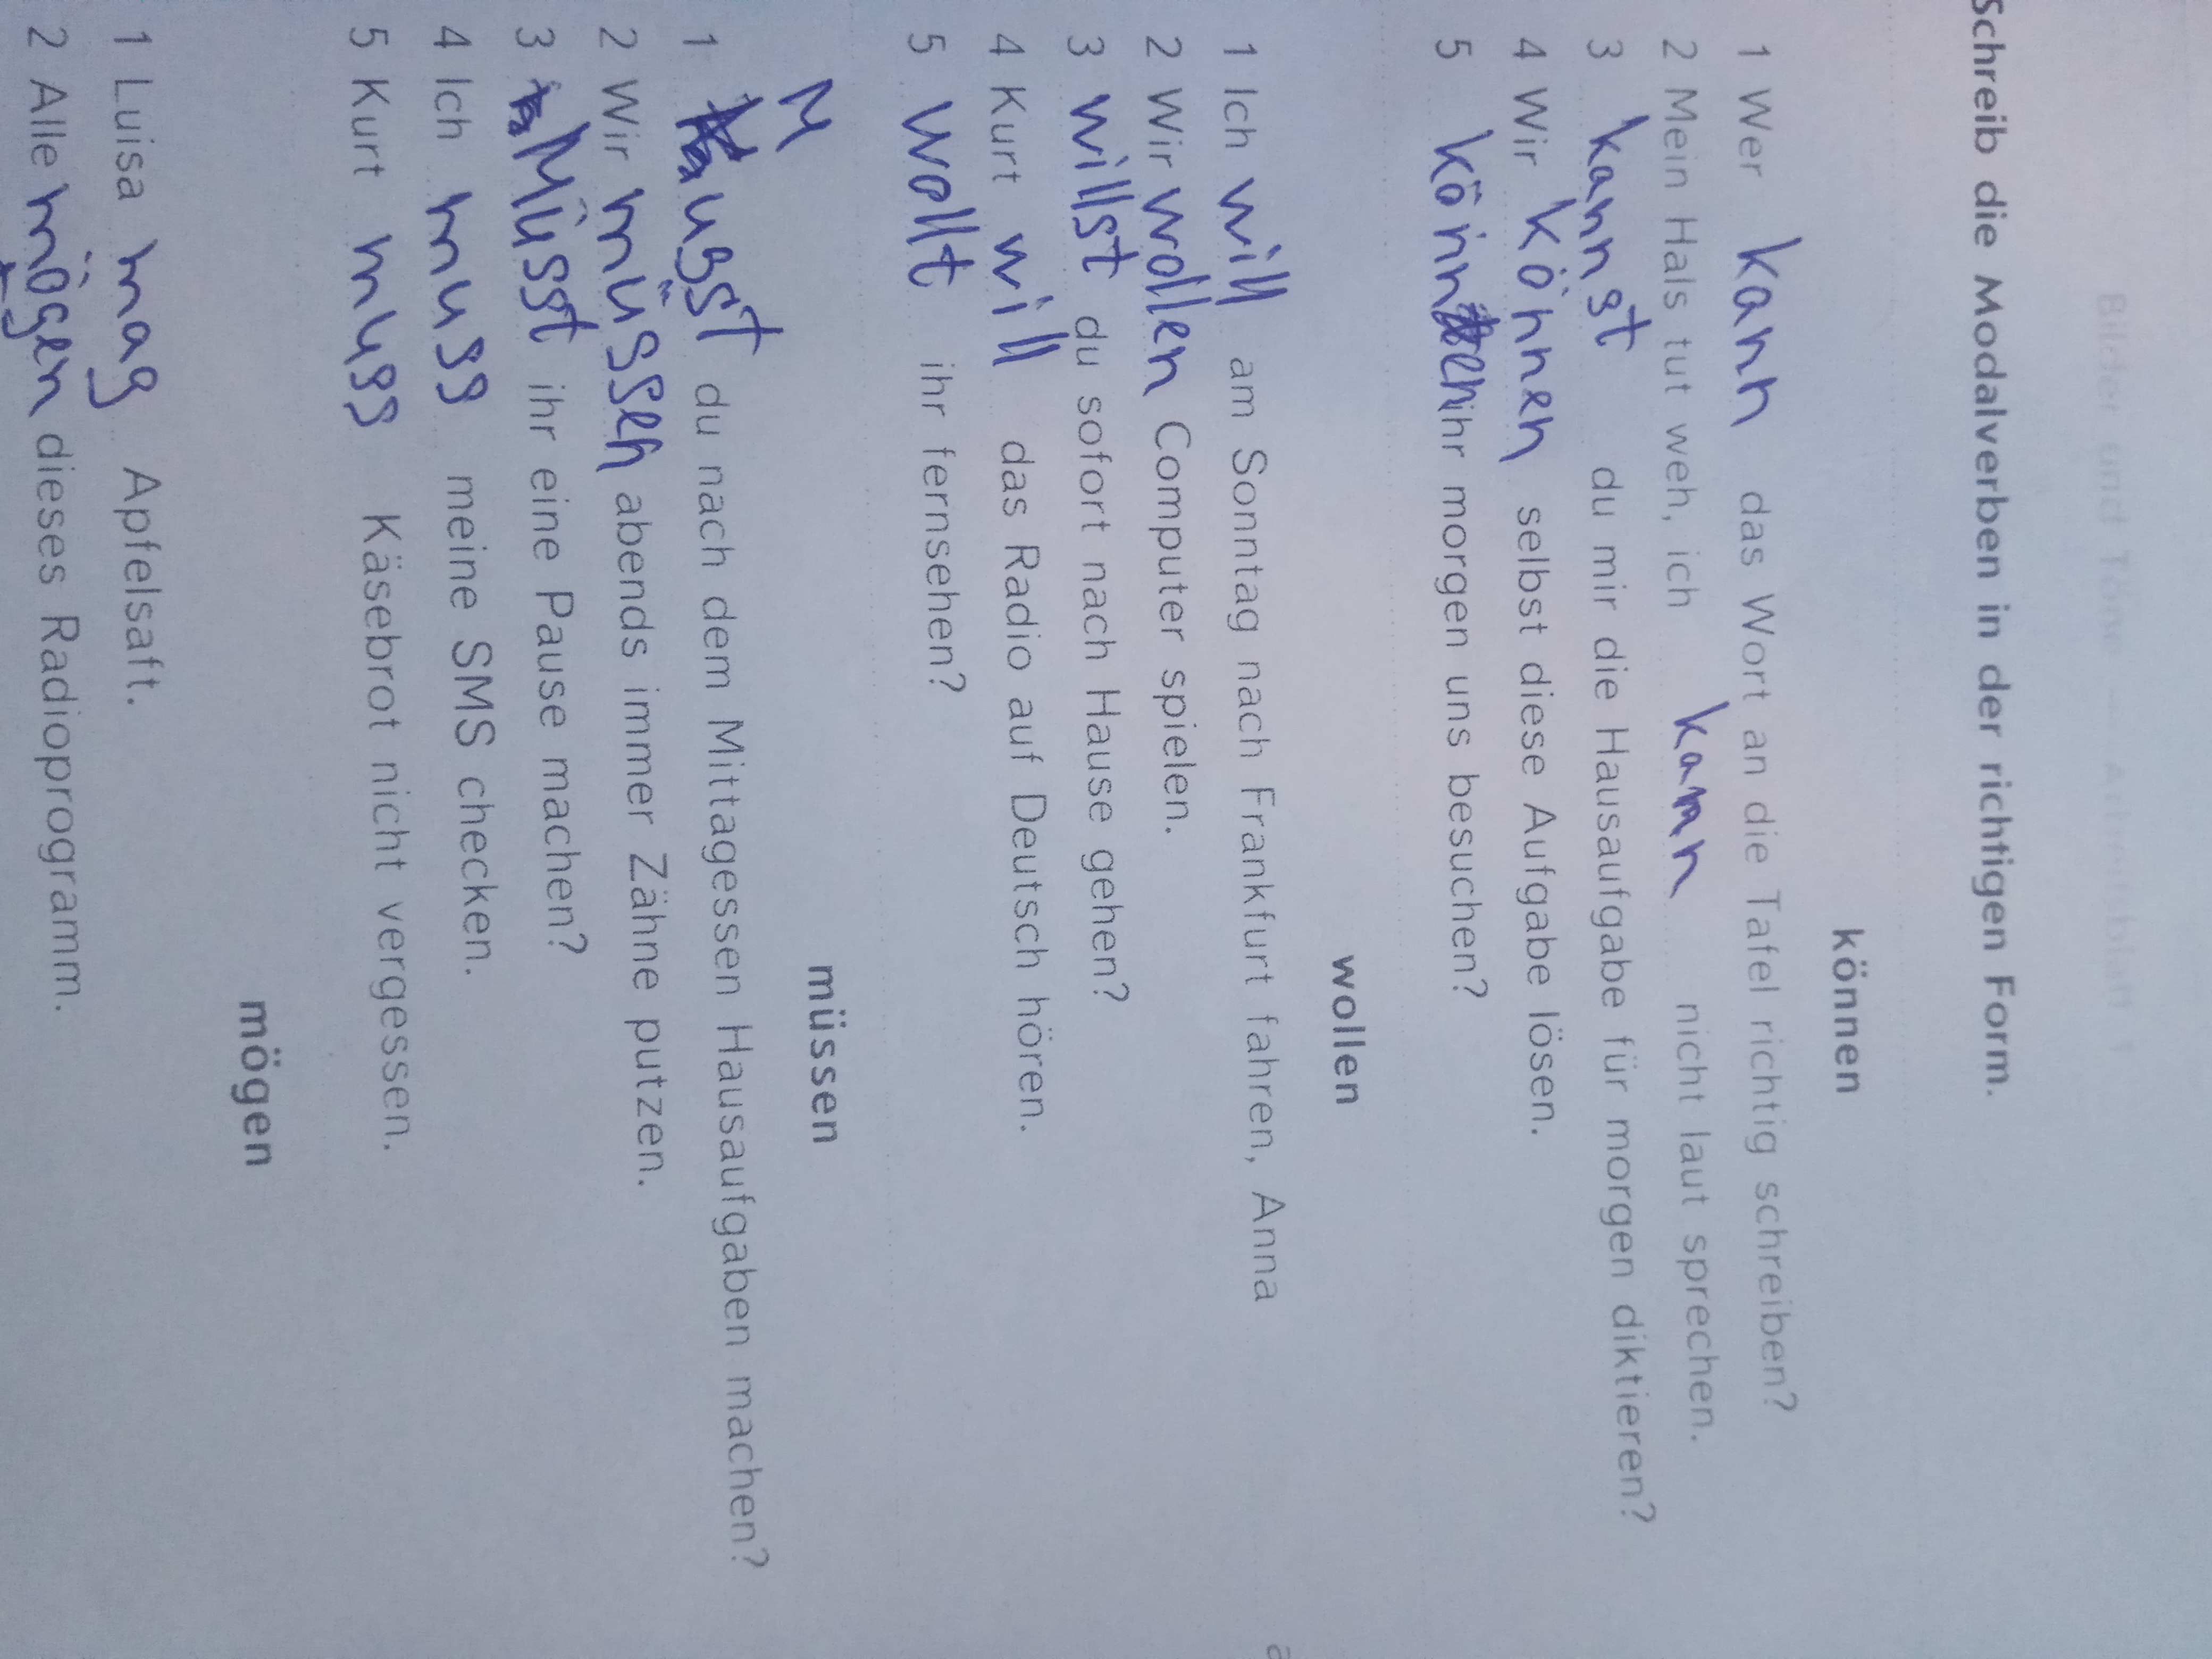 Bilder und Töne — Arbeitsblatt 1
Schreib die Modalverben in der richtigen Form.
können
1 Wer kann das Wort an die Tafel richtig schreiben?
2 Mein Hals tut weh, ich kann nicht laut sprechen.
3 kannst du mir die Hausaufgabe für morgen diktieren?
4 Wir können selbst diese Aufgabe lösen.
5 können ihr morgen uns besuchen?
wollen
1 Ich will am Sonntag nach Frankfurt fahren, Anna
2 Wir wollen Computer spielen.
3 willst du sofort nach Hause gehen?
4 Kurt will das Radio auf Deutsch hören.
5 wollt ihr fernsehen?
müssen
1 Mußst du nach dem Mittagessen Hausaufgaben machen?
2 Wir müssen abends immer Zähne putzen.
3 Müsst ihr eine Pause machen?
4 Ich muss meine SMS checken.
5 Kurt muss Käsebrot nicht vergessen.
mögen
1 Luisa mag Apfelsaft.
2 Alle mögen dieses Radioprogramm.